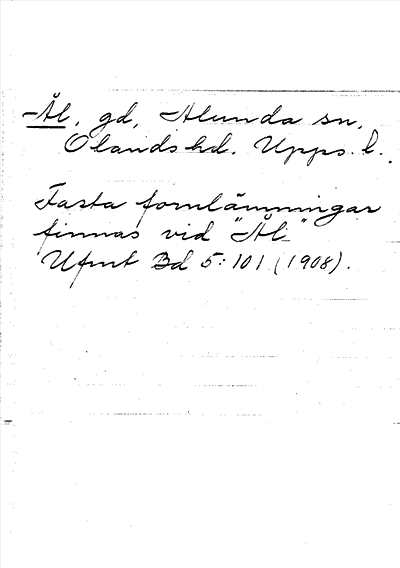 Ål, gd, Alunda sn,
Olands hd. Upps. l.
Fasta fornlämningar
finnas vid "Ål"
Ufmt Bd 5:101 (1908).